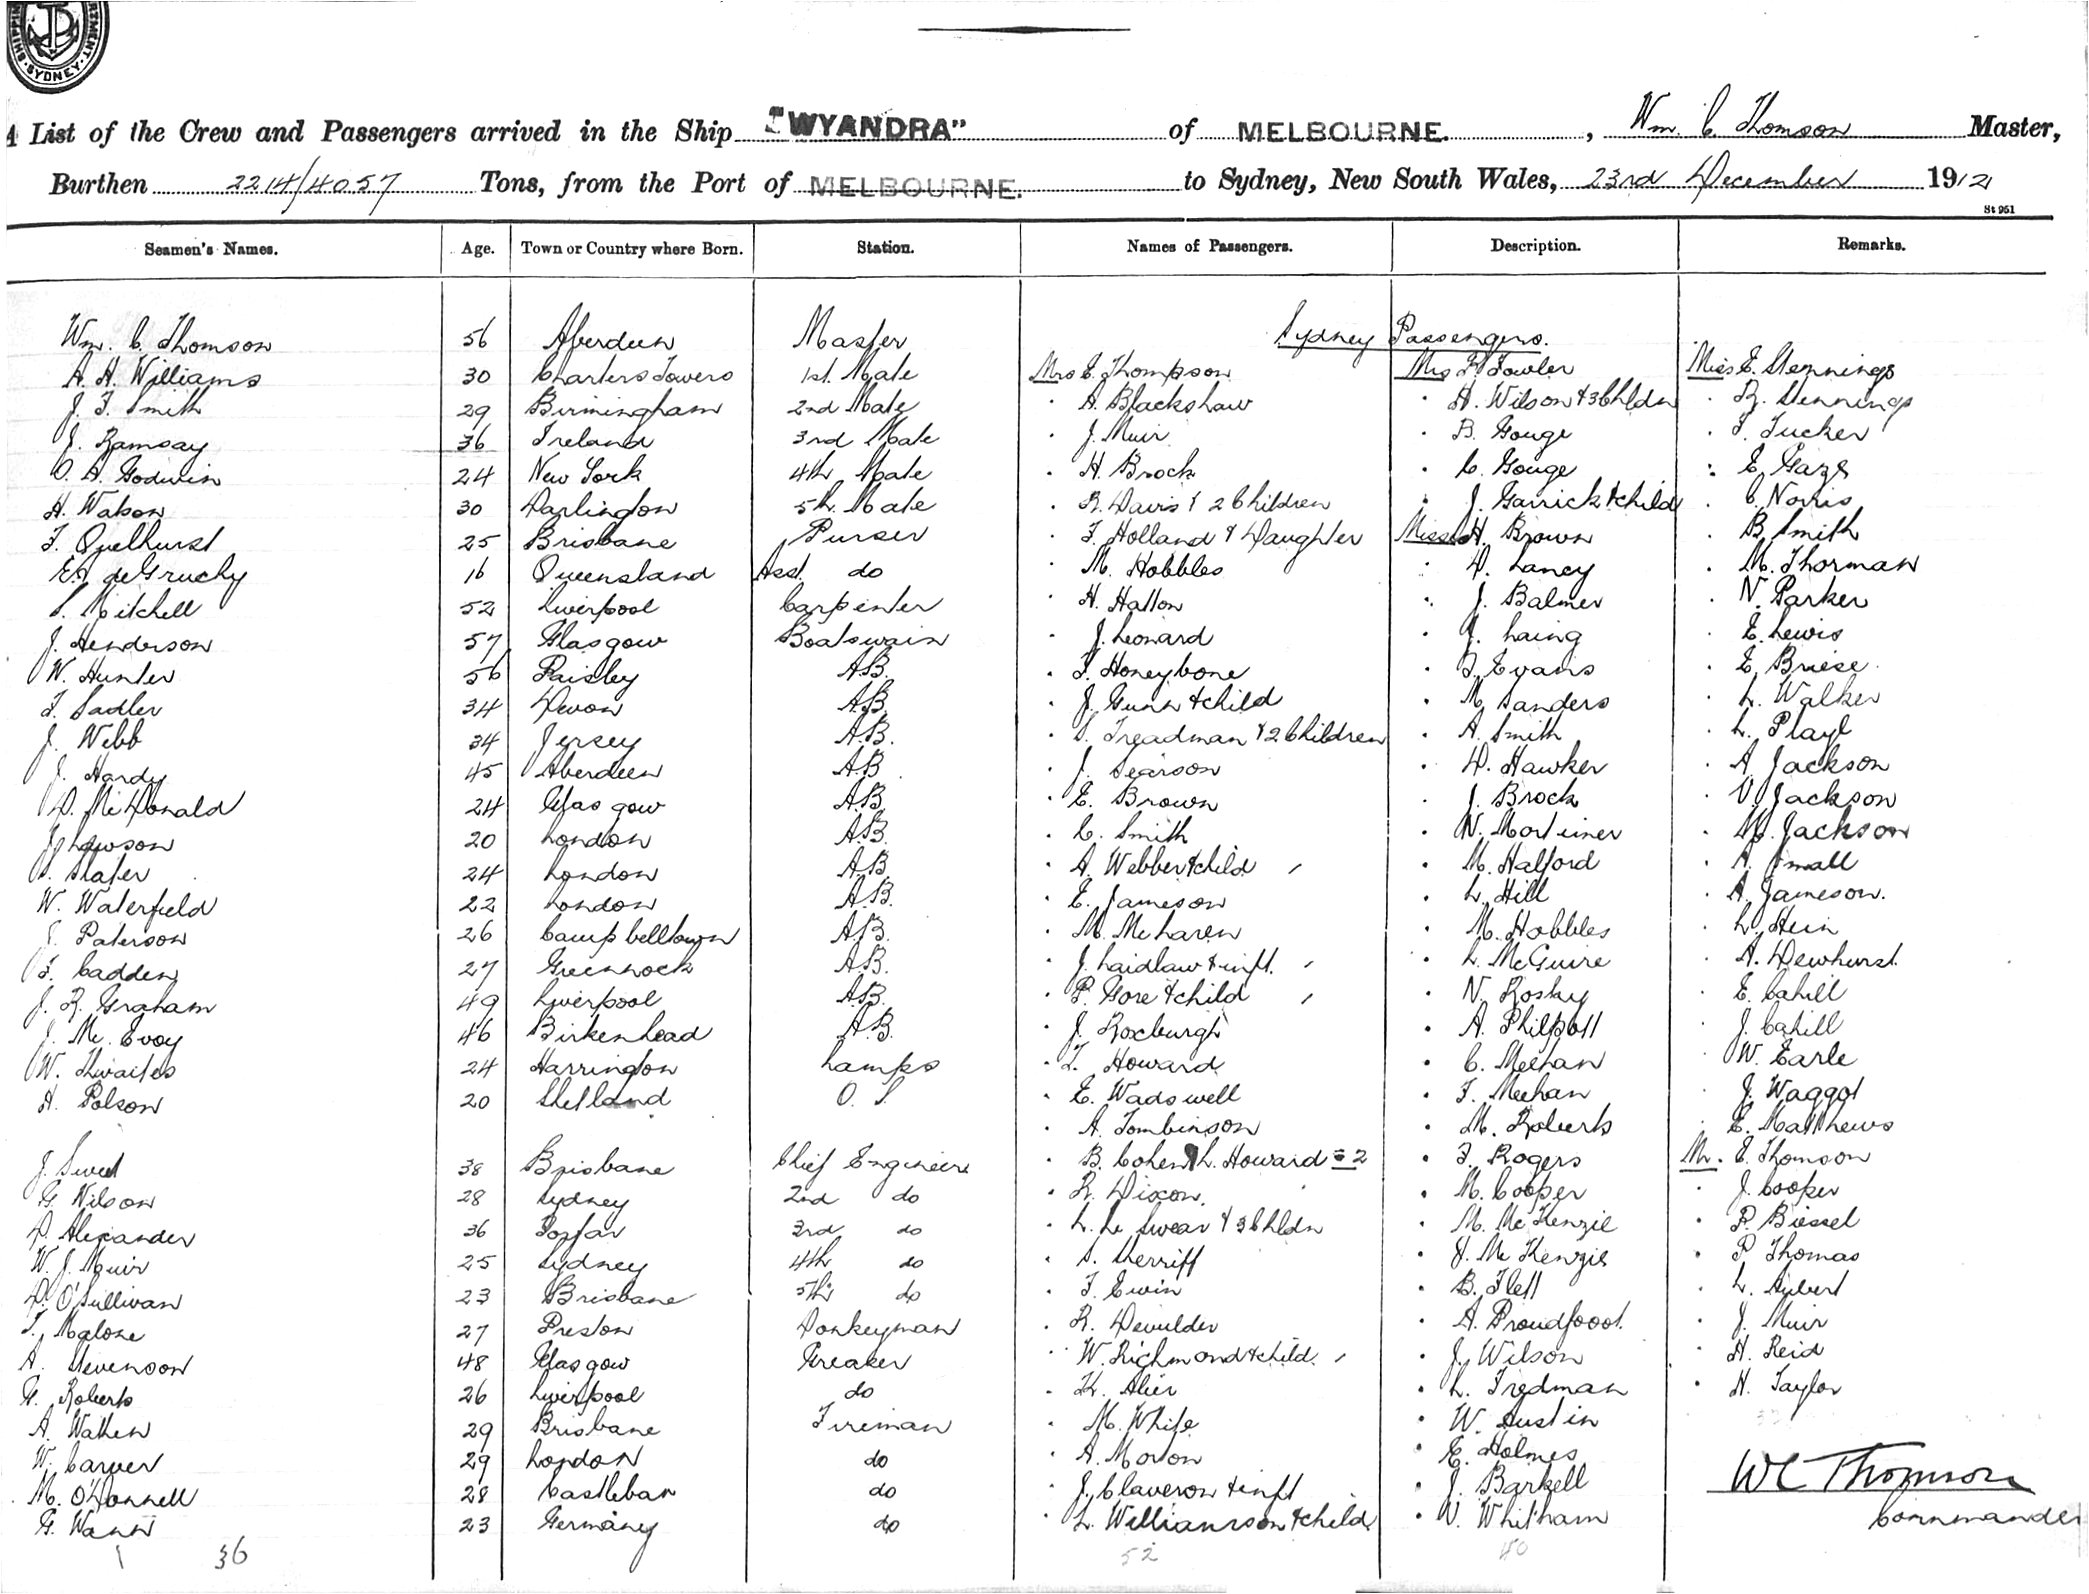 SHIPPIN
RTMENT
SYDNEY
List of the Crew and Passengers arrived in the Ship "WYANDRA" of MELBOURNE. , Wm. C. Thomson Master,
Burthen 2214/4057 Tons, from the Port of MELBOURNE. to Sydney, New South Wales, 23rd December 1912
St 951
Seamen's Names. Age. Town or Country where Born. Station. Names of Passengers. Description. Remarks.
Sydney Passengers.
Wm. C. Thomson 56 Aberdeen Master
A. H. Williams 30 Charters Towers 1st. Mate Mrs E. Thompson Mrs F. Fowler Miss E. Stennings
J. F. Smith 29 Birmingham 2nd Mate " A. Blackshaw " H. Wilson & 3 Chldn " R. Stennings
J. Ramsay 36 Ireland 3rd Mate " J. Muir " B. Gouge " F. Tucker
O. A. Godwin 24 New York 4th Mate " H. Brock " C. Gouge " E. Gaze
H. Watson 30 Darlington 5th. Mate " R. Davis & 2 Children " J. Garrick & child " C. Norris
25 Brisbane Purser " F. Holland & Daughter Miss H. Brown " B. Smith
deGruchy 16 Queensland Asst. do " M. Hobbles " D. Lancy " M. Thorman
S. Mitchell 52 Liverpool Carpenter " H. Hatton " J. Balmer " N. Parker
J. Henderson 57 Glasgow Boatswain " J. Leonard " J. Laing " E. Lewis
W. Hunter 56 Paisley A.B. " F. Honeybone " F. Evans " E. Briese
F. Sadler 34 Devon A.B. " J. Gunn & child " M. Sanders " L. Walker
J. Webb 34 Jersey A.B. " S. Treadman & 2 Children " A. Smith " L. Playl
J. Hardy 45 Aberdeen A.B. " J. Searson " D. Hawker " A. Jackson
D. McDonald 24 Glasgow A.B. " E. Brown " J. Brock " V. Jackson
J. Lawson 20 London A.B. " C. Smith " W. Mortimer " M. Jackson
S. Slater 24 London A.B. " A. Webber & child " M. Halford " A. Small
W. Waterfield 22 London A.B. " E. Jameson " L. Hill " A. Jameson.
J. Paterson 26 Campbelltown A.B. " M. McLaren " M. Hobbles " L. Hein
F. Cadden 27 Greenock A.B. " J. Laidlaw & inft. " L. McGuire " A. Dewhurst.
J. R. Graham 49 Liverpool A.B. " P. Gore & child " N. Rosky " E. Cahill
J. Mc. Evoy 46 Birkenhead A.B. " J. Roxburgh " A. Philpott " J. Cahill
W. Thwaites 24 Harrington Lamps " T. Howard " C. Meehan " W. Earle
H. Polson 20 Shetland O. S. " E. Wadswell " F. Meehan " J. Waggot
" A. Tombinson " M. Roberts " E. Matthews
J. Sweet 38 Brisbane Chief Engineer " B. Cohen L. Howard = 2 " F. Rogers Mr. E. Thomson
G. Wilson 28 Sydney 2nd do " R. Dixon. " M. Cooper " J. Cooper
D. Alexander 36 Forfar 3rd do " L. Le Swear & 3 Chldn " M. McKenzie " P. Biessel
W. J. Muir 25 Sydney 4th do " S. Sherriff " J. McKenzie " P. Thomas
D. O'Sullivan 23 Brisbane 5th do " F. Ewin " B. Flett " L. Aubert
T. Malone 27 Preston Donkeyman " R. Devulder " A. Proudfoot. " J. Muir
A. Stevenson 48 Glasgow Greaser " W. Richmond & child " J. Wilson " H. Reid
G. Roberts 26 Liverpool do " K. Alier " L. Tredman " H. Taylor
A. Wathen 29 Brisbane Fireman " M. White " W. Austin
W. Carver 29 London do " A. Morton " E. Holmes
M. O'Donnell 28 Castlebar do " J. Claveron & inft " J. Barkell WC Thomson
G. Wann 23 Germany do " L. Williamson & child " V. Whitham Commander
36 52 40